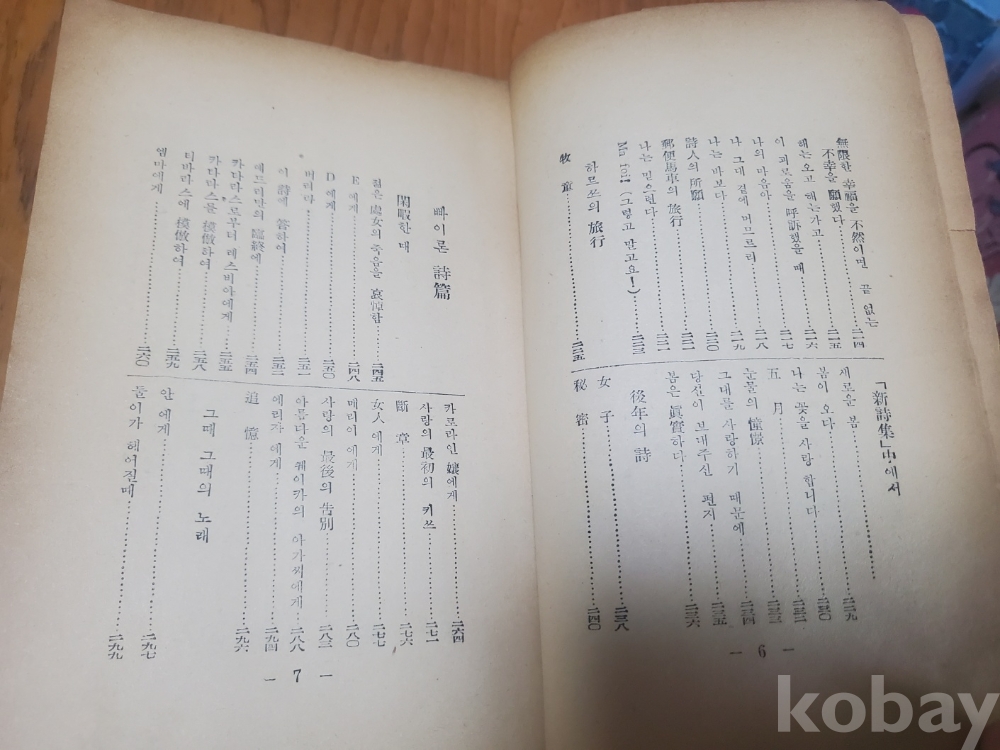 無限한 幸福을 不然이면 끝 없는
不幸을 願했다 二一四
해는 오고 해는가고 二一五
이 괴로움을 呼訴했을 때 二一六
나의 마음아 二一七
나 그대 곁에 머므르리 二一八
나는 바보다 二一九
詩人의 所願 二二〇
郵便馬車의 旅行 二二一
나는 믿으련다 二二二
(그렇고 말고요!) 二二三
하르쓰의 旅行
牧童 二二五
「新詩集」中에서
새로운 봄 二二九
봄이 오다 二三〇
나는 꽃을 사랑 합니다 二三一
五月 二三二
눈물의 憧憬 二三四
그대를 사랑하기 때문에 二三五
당신이 보내주신 편지 二三六
봄은 眞實하다
後年의 詩
女子 二三八
秘密 二四〇
— 6 —
빠이론 詩篇
閑暇한 때
젊은 處女의 죽음을 哀悼함 二四五
E 에게 二四八
D 에게 二五〇
이 詩에 答하여 二五二
에드리만의 臨終에 二五四
카타라스로부터 레스비아에게 二五五
카타타스를 模倣하여 二五八
티바라스에 模倣하여 二五九
엠마에게 二六〇
카로라인 孃에게 二六四
사랑의 最初의 키쓰 二七一
斷章 二七六
女人에게 二七七
매리이 에게 二八〇
사랑의 最後의 告別 二八三
아름다운 퀘이카의 아가씨에게 二八八
에리자 에게 二九四
追憶 二九六
그때 그대의 노래
안 에게 二九七
둘이가 헤어질때 二九九
— 7 —
kobay